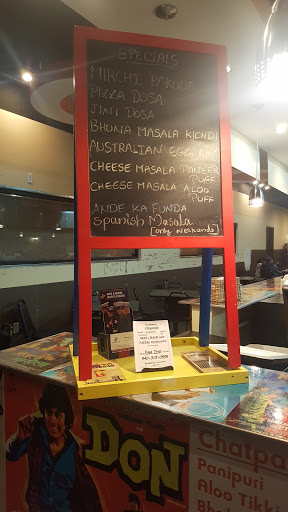 SPECIALS
MIRCHI PAKODA
PIZZA DOSA
JINI DOSA
BHUNA MASALA KICHDI
AUSTRALIAN EGG FRY
CHEESE MASALA PANEER
PUFF
CHEESE MASALA ALOO
PUFF
ANDE KA FUNDA
Spanish Masala
[only weekends]
DON
Chatpa
Panipuri
Aloo Tikki